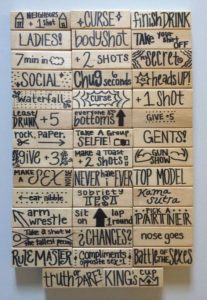 NEIGHBORS +1 shot
CURSE
finish DRINK
LADIES!
body shot
Take your shirt OFF
7 min in
+2 SHOTS
Secret
SOCIAL
Chug seconds
heads UP!
waterfall
curse
+1 Shot
Least DRUNK +5
everyone's bottoms
GIVE +5
rock, PAPER,
Take A Group SELFIE!
GENTS!
give +3
Make A Toast 2 Shots!
GUN SHOW
MAKE A SEX NOISE
NEVER HAVE EVER
TOP MODEL
ear nibble
sobriety TEST
kama sutra
arm wrestle
sit lap round
PICK A PARTNER
Take a shot w/ the tallest person
CHANCES?
nose goes
RULE MASTER
compliments opposite sex +1
Battle of the Sexes
truth or DARE KING's cup